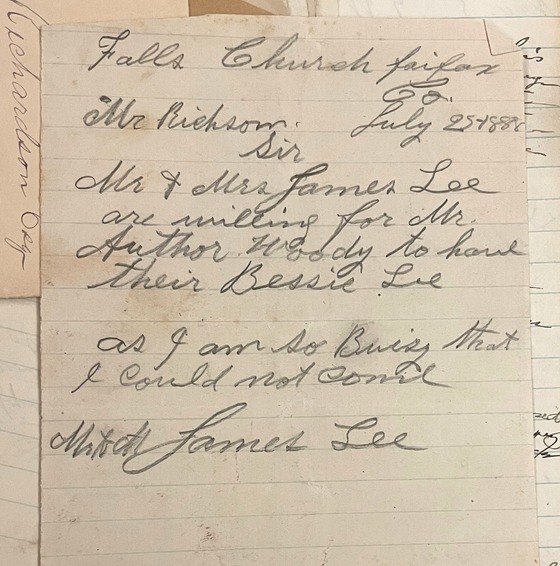 Richardson Esq
Falls Church fairfax
Co.
Mr Richson. July 25th 1888
Sir
Mr & Mrs James Lee
are willing for Mr.
Author Woody to have
their Bessie Lee
as I am so Buisy that
I could not come
Mr & M James Lee